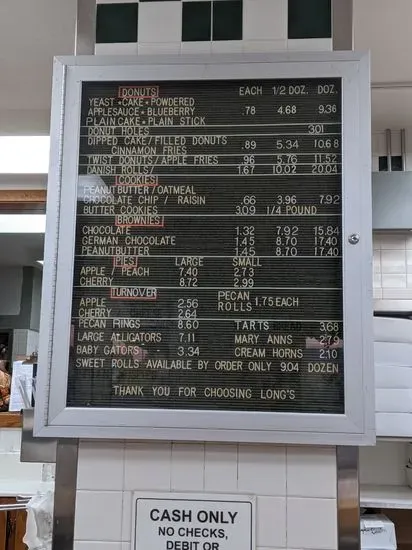 DONUTS EACH 1/2 DOZ. DOZ.
YEAST•CAKE•POWDERED
APPLESAUCE•BLUEBERRY .78 4.68 9.36
PLAIN CAKE•PLAIN STICK
DONUT HOLES 3.01
DIPPED CAKE/FILLED DONUTS .89 5.34 10.68
CINNAMON FRIES
TWIST DONUTS/APPLE FRIES .96 5.76 11.52
DANISH ROLLS/ 1.67 10.02 20.04
COOKIES
PEANUTBUTTER/OATMEAL
CHOCOLATE CHIP / RAISIN .66 3.96 7.92
BUTTER COOKIES 3.09 1/4 POUND
BROWNIES
CHOCOLATE 1.32 7.92 15.84
GERMAN CHOCOLATE 1.45 8.70 17.40
PEANUTBUTTER 1.45 8.70 17.40
PIES LARGE SMALL
APPLE / PEACH 7.40 2.73
CHERRY 8.72 2.99
TURNOVER
APPLE 2.56 PECAN ROLLS 1.75 EACH
CHERRY 2.64
PECAN RINGS 8.60 TARTS 3.68
LARGE ALLIGATORS 7.11 MARY ANNS 2.79
BABY GATORS 3.34 CREAM HORNS 2.10
SWEET ROLLS AVAILABLE BY ORDER ONLY 9.04 DOZEN
THANK YOU FOR CHOOSING LONG'S
CASH ONLY
NO CHECKS,
DEBIT OR